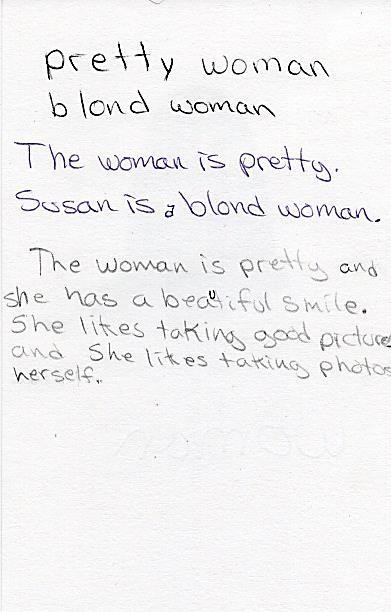 pretty woman
blond woman
The woman is pretty.
Susan is a blond woman.
The woman is pretty and
she has a beautiful smile.
She likes taking good pictures
and She likes taking photos
herself.